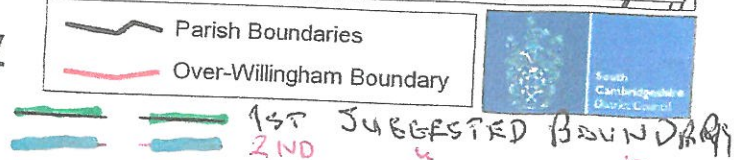 Parish Boundaries
Over-Willingham Boundary
South
Cambridgeshire
District Council
1ST SUGGESTED BOUNDARY
2ND "